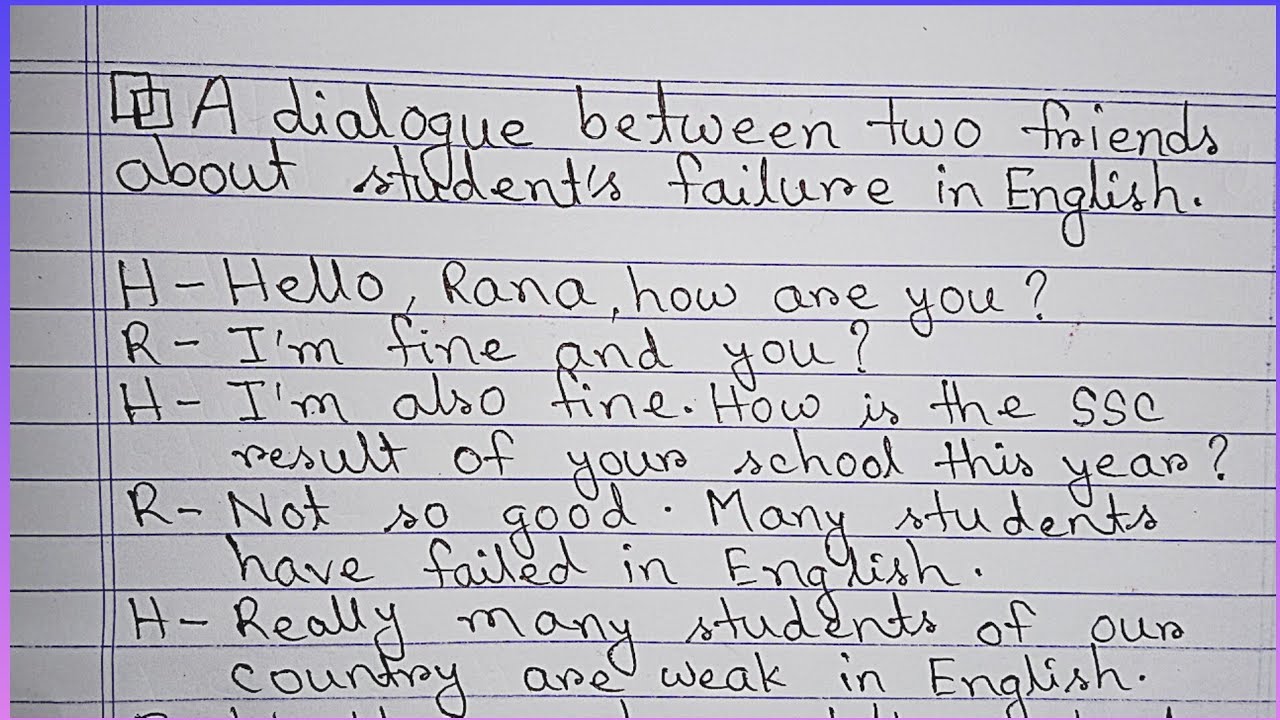 A dialogue between two friends
about student's failure in English.
H - Hello, Rana, how are you?
R - I'm fine and you?
H - I'm also fine. How is the SSC
result of your school this year?
R - Not so good. Many students
have failed in English.
H - Really many students of our
country are weak in English.